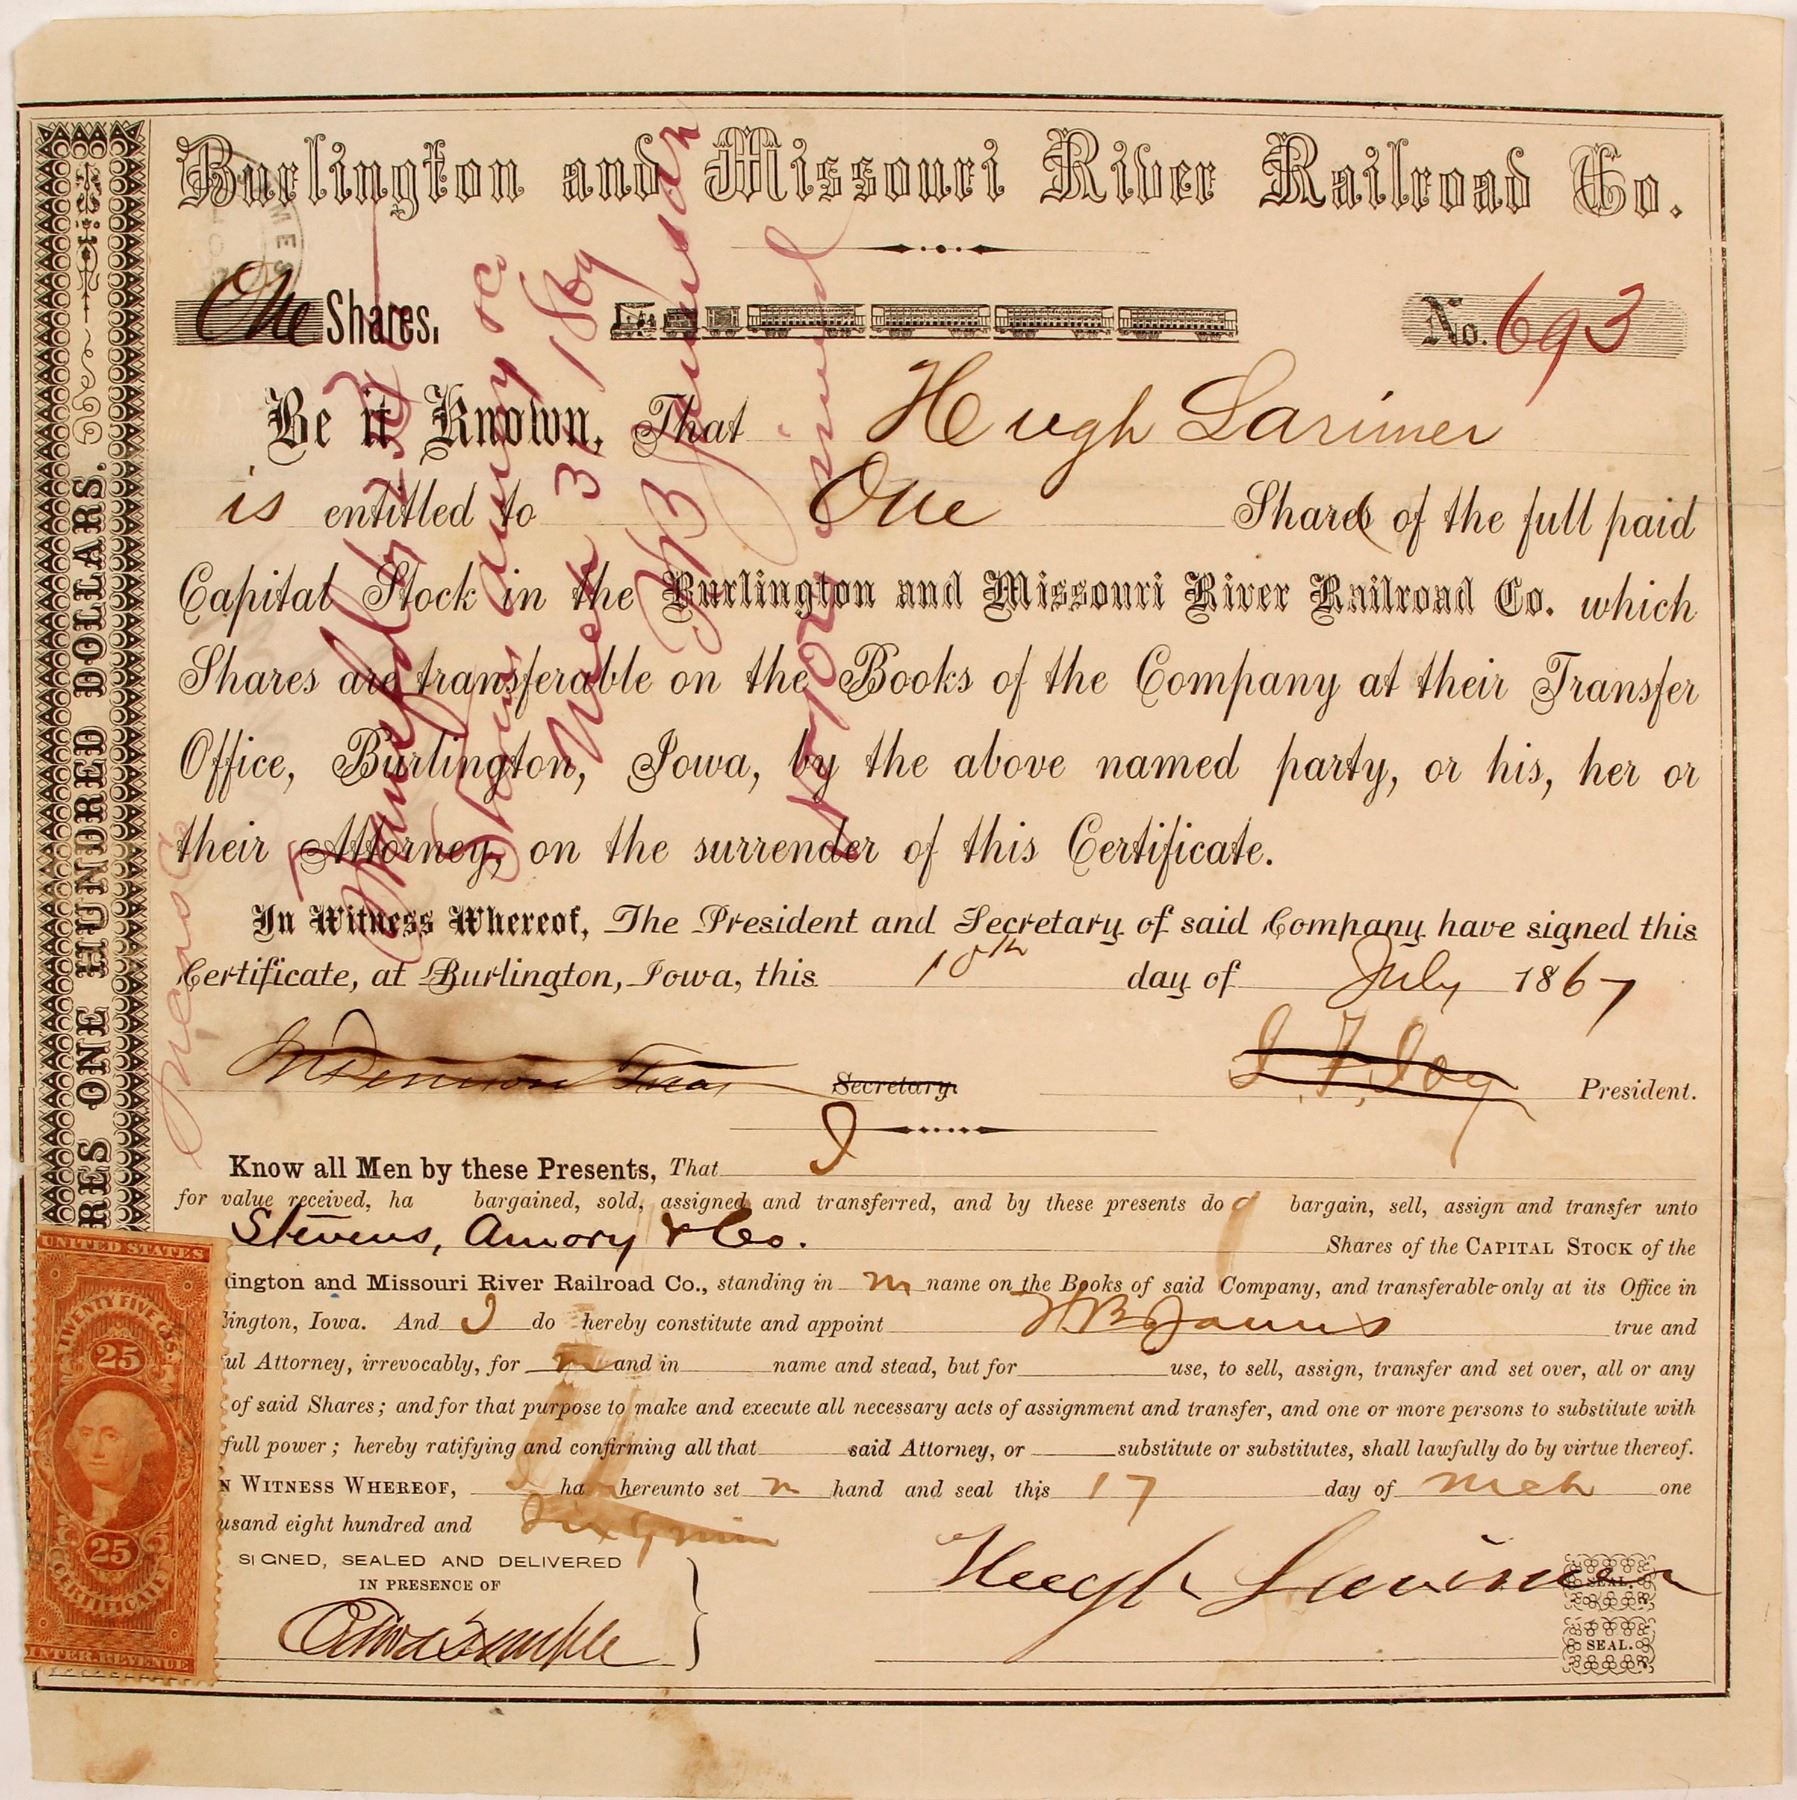 Burlington and Missouri River Railroad Co.
One Shares.
No. 693
Be it Known, That Hugh Larimer
is entitled to One Share of the full paid
Capital Stock in the Burlington and Missouri River Railroad Co. which
Shares are transferable on the Books of the Company at their Transfer
Office, Burlington, Iowa, by the above named party, or his, her or
their Attorney, on the surrender of this Certificate.
In Witness Whereof, The President and Secretary of said Company have signed this
Certificate, at Burlington, Iowa, this 10th day of July 1867
Secretary.
J. F. Joy President.
Know all Men by these Presents, That I
for value received, ha bargained, sold, assigned and transferred, and by these presents do bargain, sell, assign and transfer unto
Stevens, Amory & Co.
Shares of the CAPITAL STOCK of the
ington and Missouri River Railroad Co., standing in m name on the Books of said Company, and transferable only at its Office in
lington, Iowa. And I do hereby constitute and appoint true and
ul Attorney, irrevocably, for m and in name and stead, but for use, to sell, assign, transfer and set over, all or any
of said Shares; and for that purpose to make and execute all necessary acts of assignment and transfer, and one or more persons to substitute with
full power; hereby ratifying and confirming all that said Attorney, or substitute or substitutes, shall lawfully do by virtue thereof.
N WITNESS WHEREOF, I ha hereunto set m hand and seal this 17 day of Mch one
usand eight hundred and
SIGNED, SEALED AND DELIVERED
IN PRESENCE OF
Hugh Larimer
SEAL.
SEAL.
RES ONE HUNDRED DOLLARS.
UNITED STATES
TWENTY FIVE CTS.
25
25
CERTIFICATE
INTER. REVENUE
Stevens Amory &c
Mch 31 1869